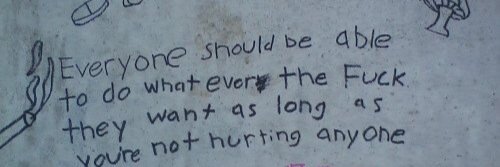 Everyone should be able
to do whatever the Fuck
they want as long as
you're not hurting anyone